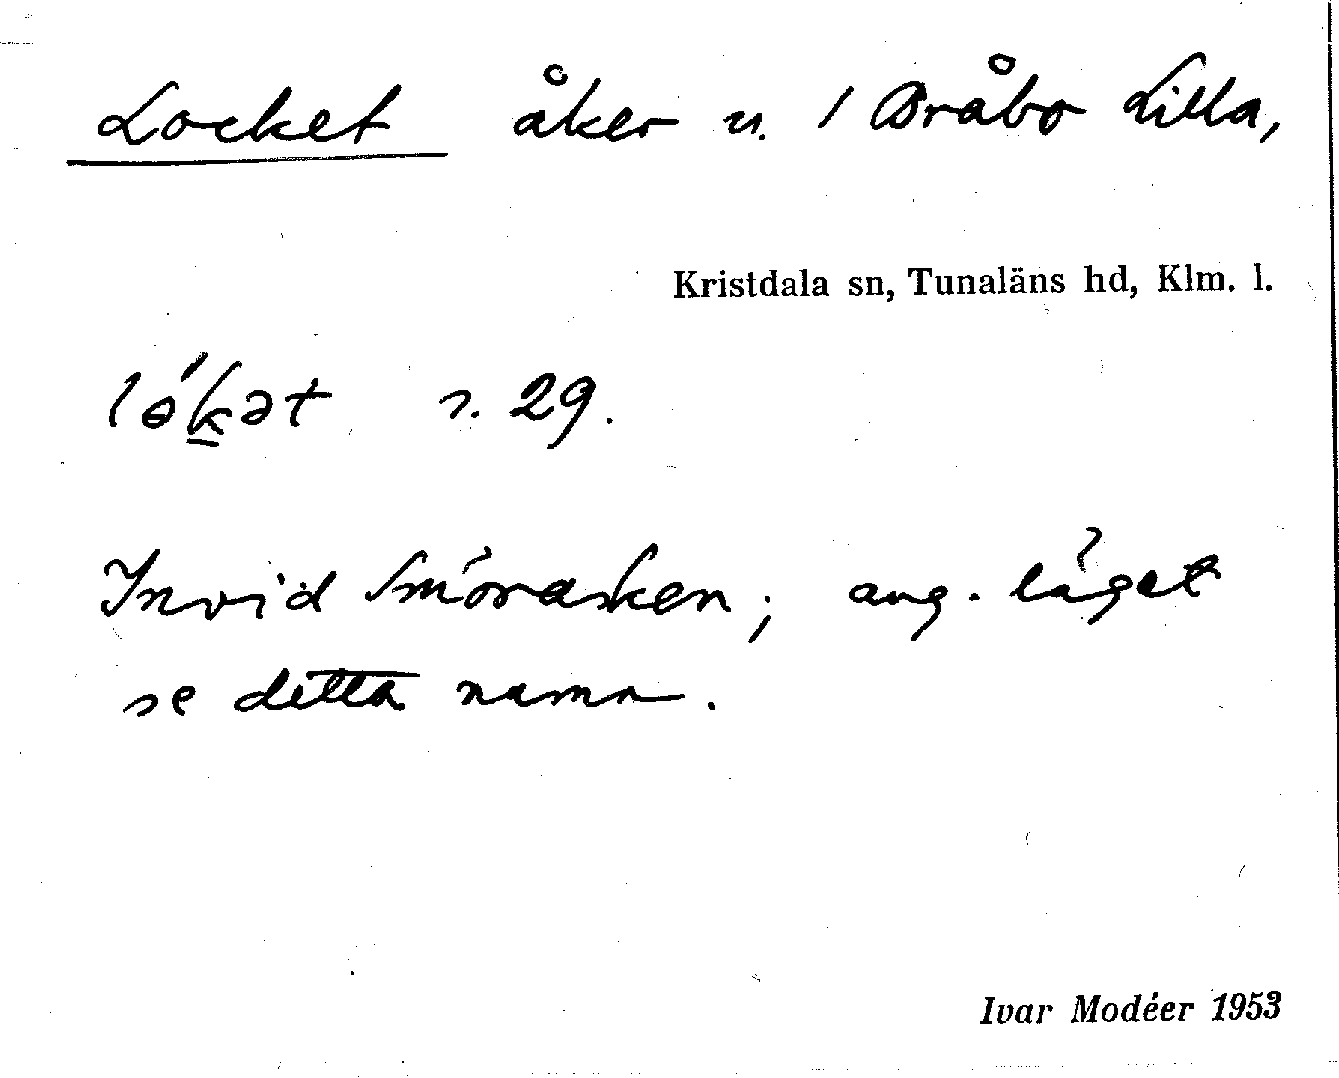 Locket åker u. 1 Bråbo Lilla,
Kristdala sn, Tunaläns hd, Klm. l.
lɵ́k̲ət s. 29.
Invid Smörasken; ang. läget
se detta namn.
Ivar Modéer 1953